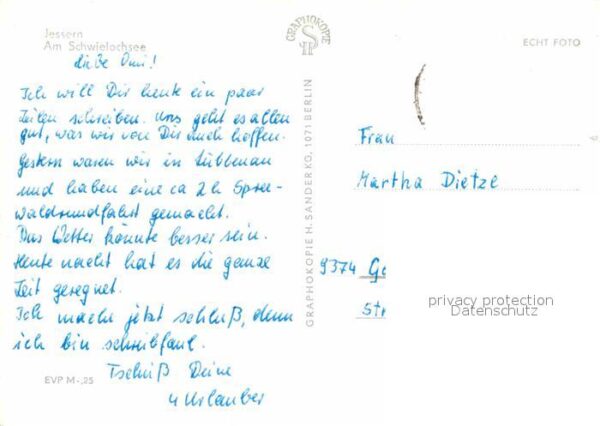 Jessern
Am Schwielochsee
Liebe Omi!
Ich will Dir heute ein paar
Zeilen schreiben. Uns geht es allen
gut, was wir von Dir auch hoffen.
Gestern waren wir in Lübbenau
und haben eine ca 2 h Spree-
waldrundfahrt gemacht.
Das Wetter könnte besser sein.
Heute nacht hat es die ganze
Zeit geregnet.
Ich mache jetzt schluß, denn
ich bin schreibfaul.
Tschüß Deine
4 Urlauber
EVP M -,25
GRAPHOKOPIE
GRAPHOKOPIE H. SANDER KG, 1071 BERLIN
ECHT FOTO
Frau
Martha Dietze
9374 Ge
Str
privacy protection
Datenschutz